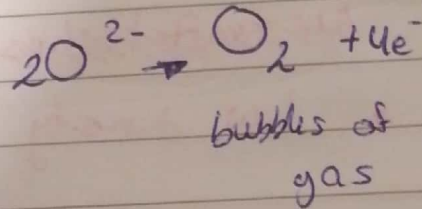 2O²⁻ → O₂ + 4e⁻
bubbles of
gas